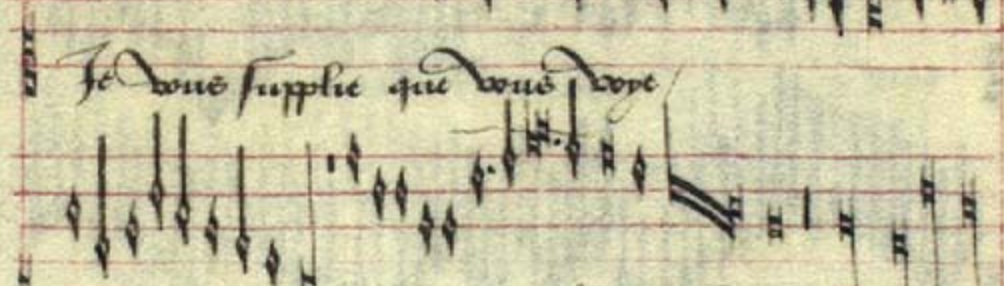 Je vous supplie que vous voye